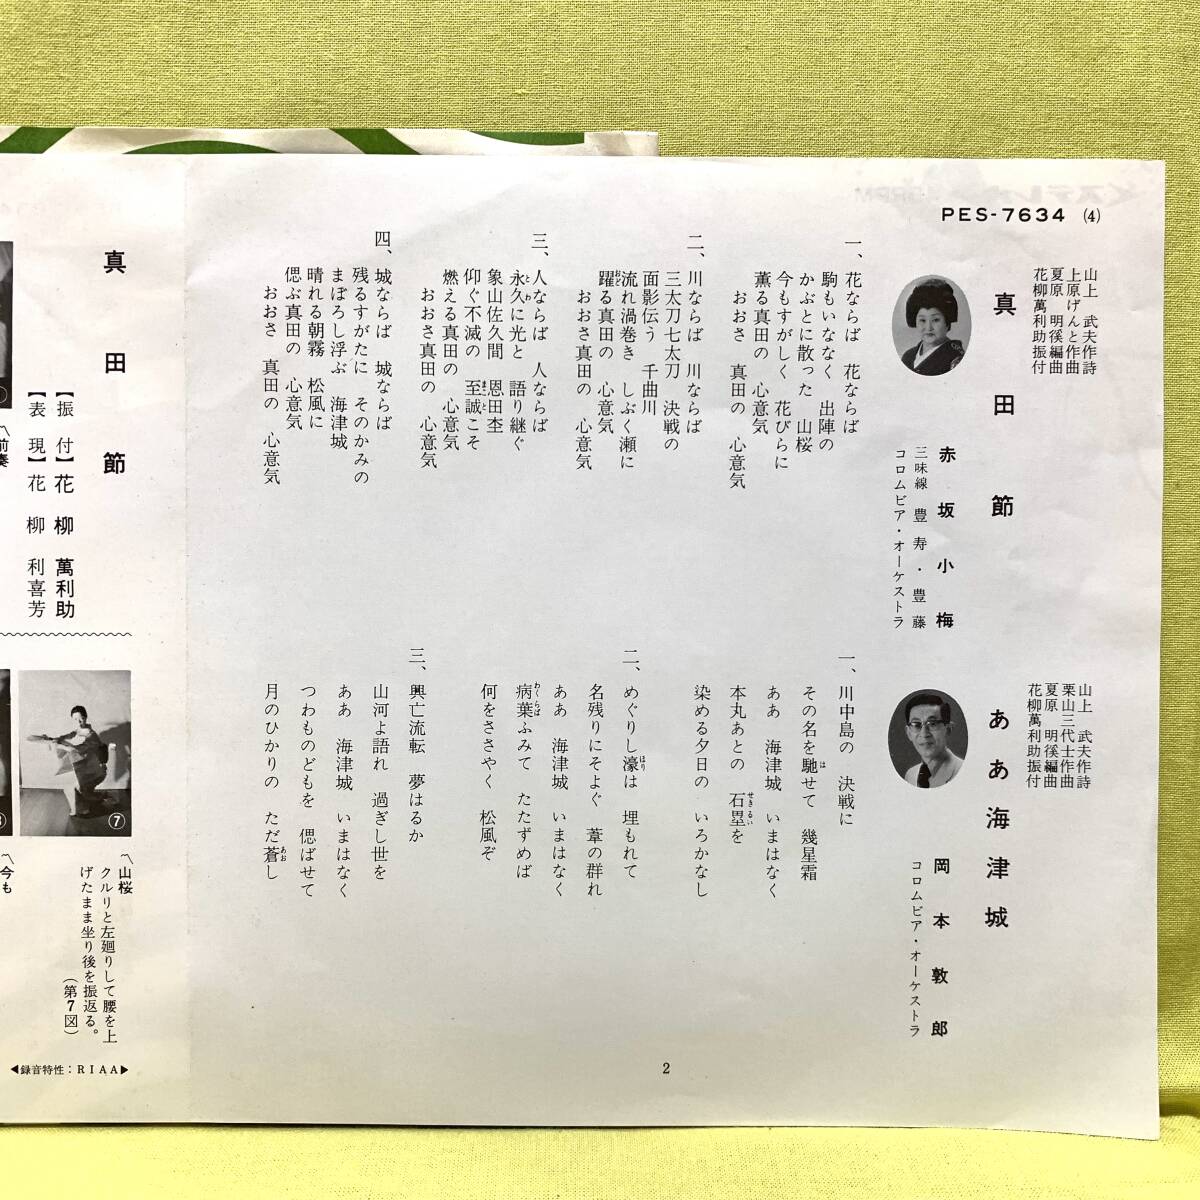 PES-7634 (4)
山上 武夫作詩
上原げんと作曲
夏原 明徯編曲
花柳萬利助振付
真田節
赤坂小梅
三味線 豊寿・豊藤
コロムビア・オーケストラ
一、花ならば 花ならば
駒もいななく 出陣の
かぶとに散った 山桜
今もすがしく 花びらに
薫る真田の 心意気
おおさ 真田の 心意気
二、川ならば 川ならば
三太刀七太刀 決戦の
面影伝う 千曲川
流れ渦巻き しぶく瀬に
躍る真田の 心意気
おど
おおさ真田の 心意気
三、人ならば 人ならば
永久に光と 語り継ぐ
とわ
象山佐久間 恩田杢
仰ぐ不滅の 至誠こそ
まこと
燃える真田の 心意気
おおさ真田の 心意気
四、城ならば 城ならば
残るすがたに そのかみの
まぼろし浮ぶ 海津城
晴れる朝霧 松風に
偲ぶ真田の 心意気
おおさ 真田の 心意気
山上 武夫作詩
栗山三代士作曲
夏原 明徯編曲
花柳萬利助振付
ああ海津城
岡本敦郎
コロムビア・オーケストラ
一、川中島の 決戦に
その名を馳せて 幾星霜
は
ああ 海津城 いまはなく
本丸あとの 石塁を
せきるい
染める夕日の いろかなし
二、めぐりし濠は 埋もれて
ほり
名残りにそよぐ 葦の群れ
ああ 海津城 いまはなく
病葉ふみて たたずめば
わくらば
何をささやく 松風ぞ
三、興亡流転 夢はるか
山河よ語れ 過ぎし世を
ああ 海津城 いまはなく
つわものどもを 偲ばせて
月のひかりの ただ蒼し
あお
2
真田節
【振付】花柳萬利助
【表現】花柳利喜芳
〽前奏
⑦
〽山桜
クルリと左廻りして腰を上
げたまま坐り後を振返る。
(第7図)
〽今も
◀録音特性：RIAA▶